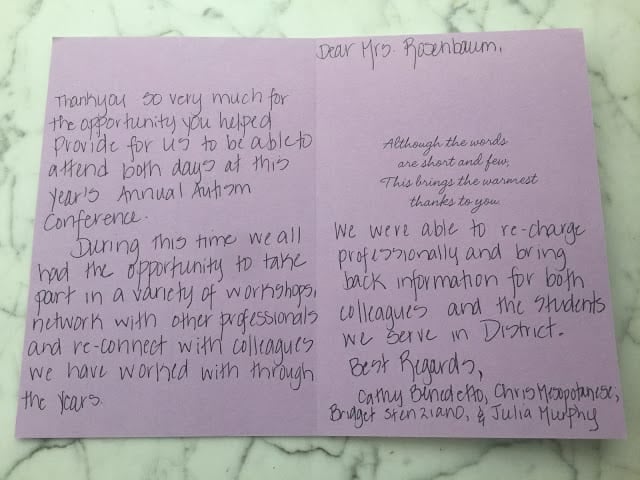 Dear Mrs. Rosenbaum,
Thankyou so very much for
the opportunity you helped
Provide for us to be able to
attend both days at this
year's Annual Autism
Conference.
During this time we all
had the opportunity to take
part in a variety of workshops,
network with other professionals
and re-connect with colleagues
we have worked with through
the years.
Although the words
are short and few,
This brings the warmest
thanks to you.
We were able to re-charge
professionally and bring
back information for both
colleagues and the students
we serve in District.
Best Regards,
Cathy Benedetto, Chris Mesopotanese,
Bridget Stenziano, & Julia Murphy